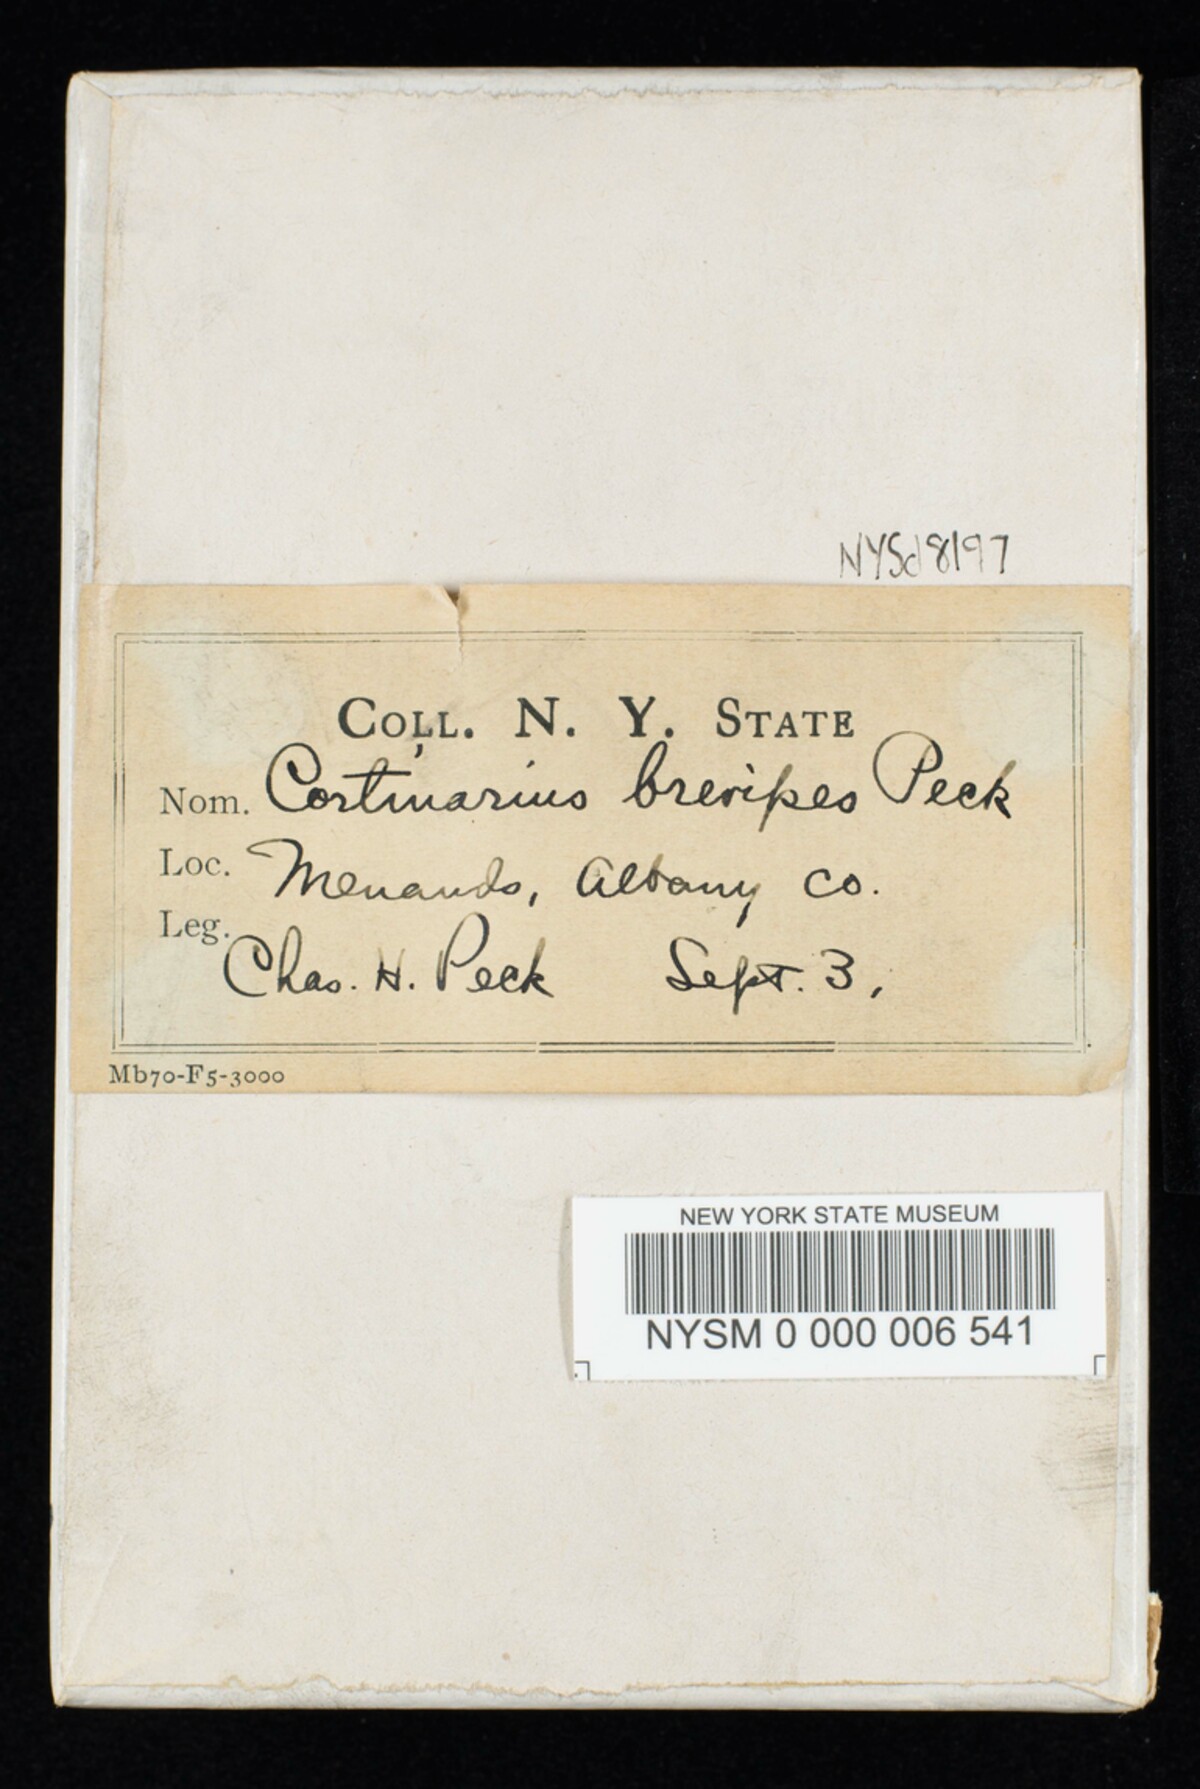 NYSd8197
COLL. N. Y. STATE
Nom. Cortinarius brevipes Peck
Loc. Menands, Albany Co.
Leg. Chas. H. Peck Sept. 3,
Mb70-F5-3000
NEW YORK STATE MUSEUM
NYSM 0 000 006 541